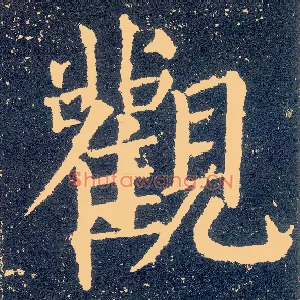 觀
Shufawang.CN